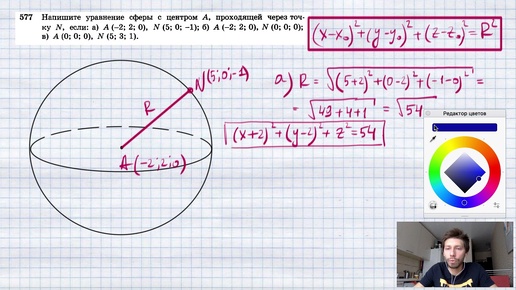 577 Напишите уравнение сферы с центром A, проходящей через точ-
ку N, если: а) A (−2; 2; 0), N (5; 0; −1); б) A (−2; 2; 0), N (0; 0; 0);
в) A (0; 0; 0), N (5; 3; 1).
(x-x₀)²+(y-y₀)²+(z-z₀)²=R²
N(5;0;-1)
R
A(-2;2;0)
а) R = √(5+2)²+(0-2)²+(-1-0)² =
= √49+4+1 = √54
(x+2)²+(y-2)²+z²=54
Редактор цветов